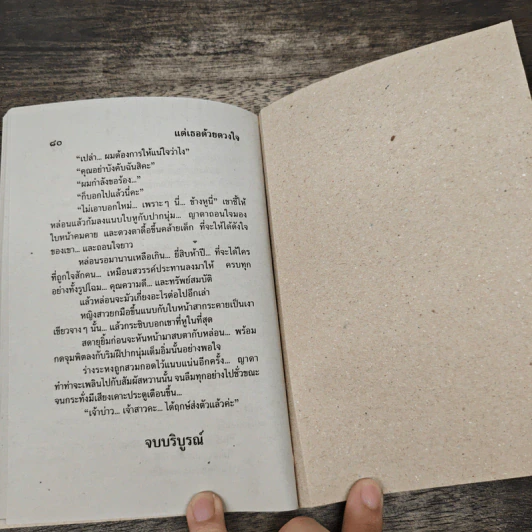 ๘๐ แด่เธอด้วยดวงใจ
“เปล่า... ผมต้องการให้แน่ใจว่าไง”
“คุณอย่าบังคับฉันสิคะ”
“ผมกำลังขอร้อง...”
“ก็บอกไปแล้วนี่คะ”
“ไม่เอาบอกใหม่... เพราะๆ นี่... ข้างหูนี่” เขาชี้ให้
หล่อนแล้วก้มลงแนบใบหูกับปากนุ่ม... ญาดาถอนใจมอง
ใบหน้าคมคาย และดวงตาดื้อขึ้นคล้ายเด็ก ที่จะให้ได้ดังใจ
ของเขา... และถอนใจยาว
หล่อนรอมานานเหลือเกิน... ยี่สิบห้าปี... ที่จะได้ใคร
ที่ถูกใจสักคน... เหมือนสวรรค์ประทานลงมาให้ ครบทุก
อย่างทั้งรูปโฉม... คุณความดี... และทรัพย์สมบัติ
แล้วหล่อนจะมัวเกี่ยงอะไรต่อไปอีกเล่า
หญิงสาวยกมือขึ้นแนบกับใบหน้าสากระคายเป็นเงา
เขียวจางๆ นั้น... แล้วกระซิบบอกเขาที่หูในที่สุด
สดายุยิ้มก่อนจะหันหน้ามาสบตากับหล่อน... พร้อม
กดจุมพิตลงกับริมฝีปากนุ่มเต็มอิ่มนั้นอย่างพอใจ
ร่างระหงถูกสวมกอดไว้แนบแน่นอีกครั้ง... ญาดา
ทำท่าจะเพลินไปกับสัมผัสหวานนั้น จนลืมทุกอย่างไปชั่วขณะ
จนกระทั่งมีเสียงเคาะประตูเตือนขึ้น...
“เจ้าบ่าว... เจ้าสาวคะ... ได้ฤกษ์ส่งตัวแล้วค่ะ”
จบบริบูรณ์